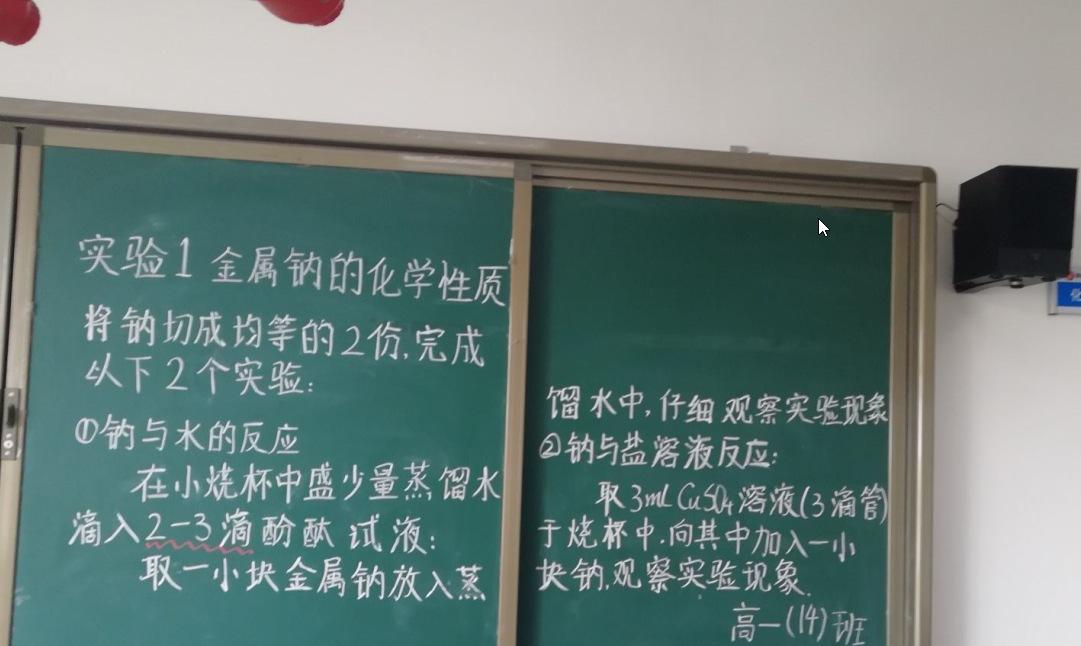 实验1 金属钠的化学性质
将钠切成均等的2份,完成
以下2个实验:
①钠与水的反应
在小烧杯中盛少量蒸馏水
滴入2-3滴酚酞试液:
取一小块金属钠放入蒸
馏水中,仔细观察实验现象
②钠与盐溶液反应:
取3ml CuSO₄溶液(3滴管)
于烧杯中.向其中加入一小
块钠,观察实验现象.
高一(14)班